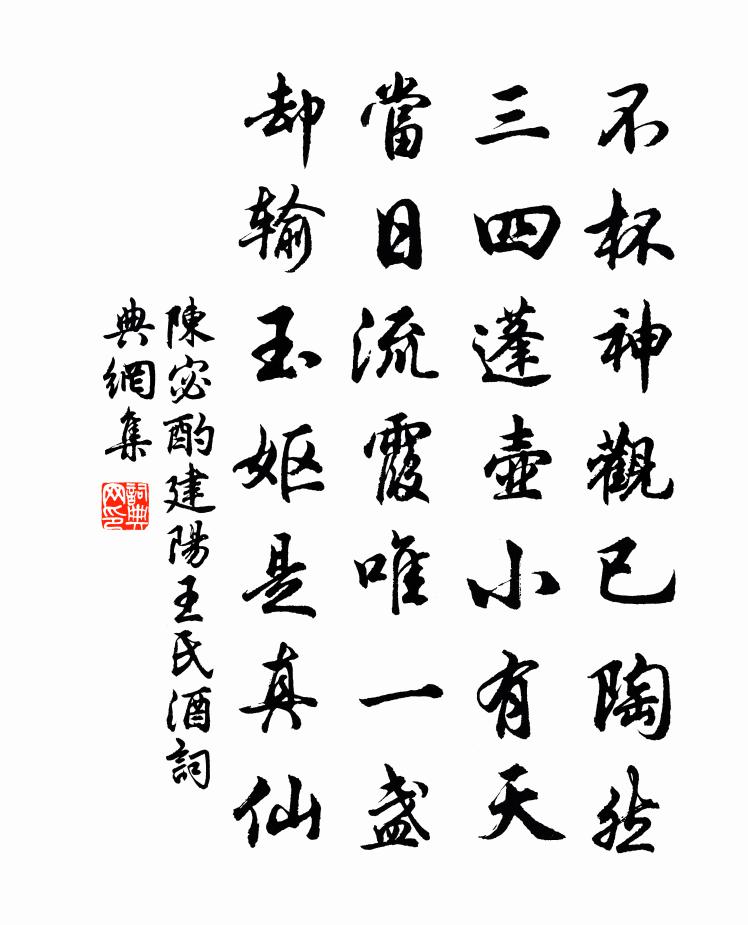 不杯神觀已陶然
三四蓬壺小有天
當日流霞唯一盞
却输玉妪是真仙
陳宓酌建陽王氏酒詞
典網集
詞典
网印